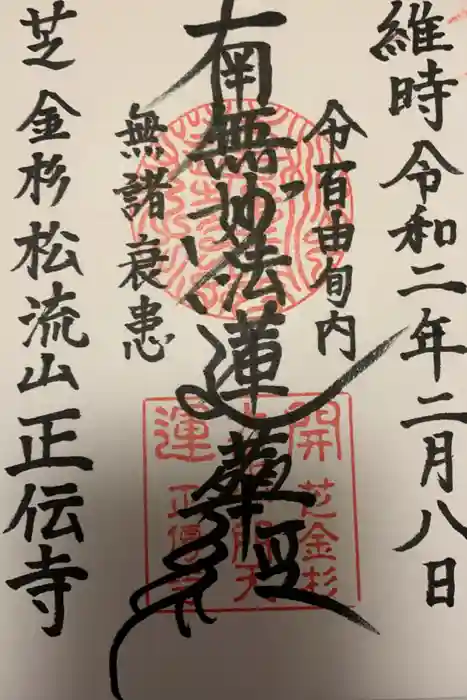 維時令和二年二月八日
令百由旬内
南無妙法蓮華経
無諸衰患
芝金杉松流山正伝寺
開運
芝金杉
正傳寺